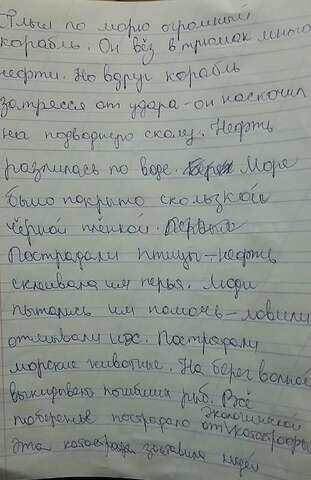 Плыл по морю огромный
корабль. Он вёз в трюмах много
нефти. Но вдруг корабль
затрясся от удара - он наскочил
на подводную скалу. Нефть
разлилась по воде. Море
было покрыто скользкой
чёрной плёнкой. Первые
Пострадали птицы - нефть
склеивала им перья. Люди
пытались им помочь - ловили
отмывали их. Пострадали
морские животные. На берег волной
выкидывало погибших рыб. Всё
побережье пострадало от экологической катастрофы
Эта катастрофа заставила людей